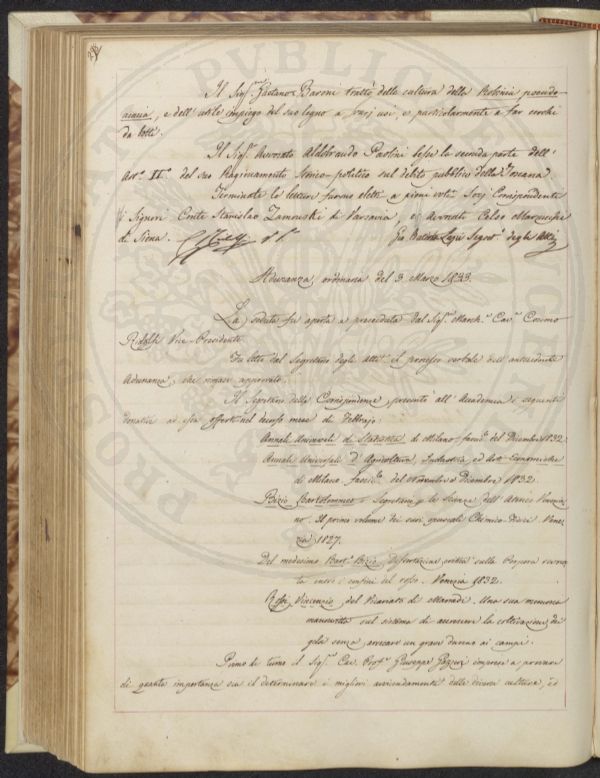 Il Sig.r Gaetano Baroni trattò della cultura della Robinia pseudo-
acacia, e dell'utile impiego del suo legno a varj usi, e particolarmente a far cerchi
da botti.
Il Sig.r Avvocato Aldobrando Paolini lesse la seconda parte dell'
Art.o II.o del suo Ragionamento storico-politico sul debito pubblico della Toscana.
Terminate le letture furono eletti a pieni voti Socj Corrispondenti
i Signori Conte Stanislao Zamouski di Varsavia, e Avvocato Celso Marzucchi
di Siena.
Gio. Batista Lapi Segret.o degli Atti
Adunanza ordinaria del 3 Marzo 1833.
La seduta fu aperta e preceduta dal Sig.r March.e Cav.r Cosimo
Ridolfi Vice-Presidente.
Fu letto dal Segretario degli Atti il processo verbale dell'antecedente
Adunanza, che rimase approvato.
Il Segretario della Corrispondenza presentò all'Accademia i seguenti
donativi ad essa offerti nel decorso mese di Febbrajo:
Annali Universali di Statistica di Milano fascic.o del Dicembre 1832.
Annali Universali d'Agricoltura, Industria ed Arti Economiche
di Milano. Fascic.lo del Novembre e Dicembre 1832.
Bizio Bartolommeo, Segretario per le scienze dell'Ateneo Venezia-
no. Il primo volume dei suoi opuscoli Chimico-Fisici. Vene-
zia 1827.
Del medesimo Bart.o Bizio, Dissertazione critica sulla Porpora
entro i confini del rosso. Venezia 1832.
Rossi Vincenzio, del Vicariato di Marradi. Una sua memoria
manoscritta sul sistema di accrescere la coltivazione dei
gelsi senza arrecare un grave danno ai campi.
Primo di turno il Sig.r Cav. Prof.r Giuseppe Gazzeri imprese a provare
di quanta importanza sia il determinare i migliori avvicendamenti delle diverse culture, ed